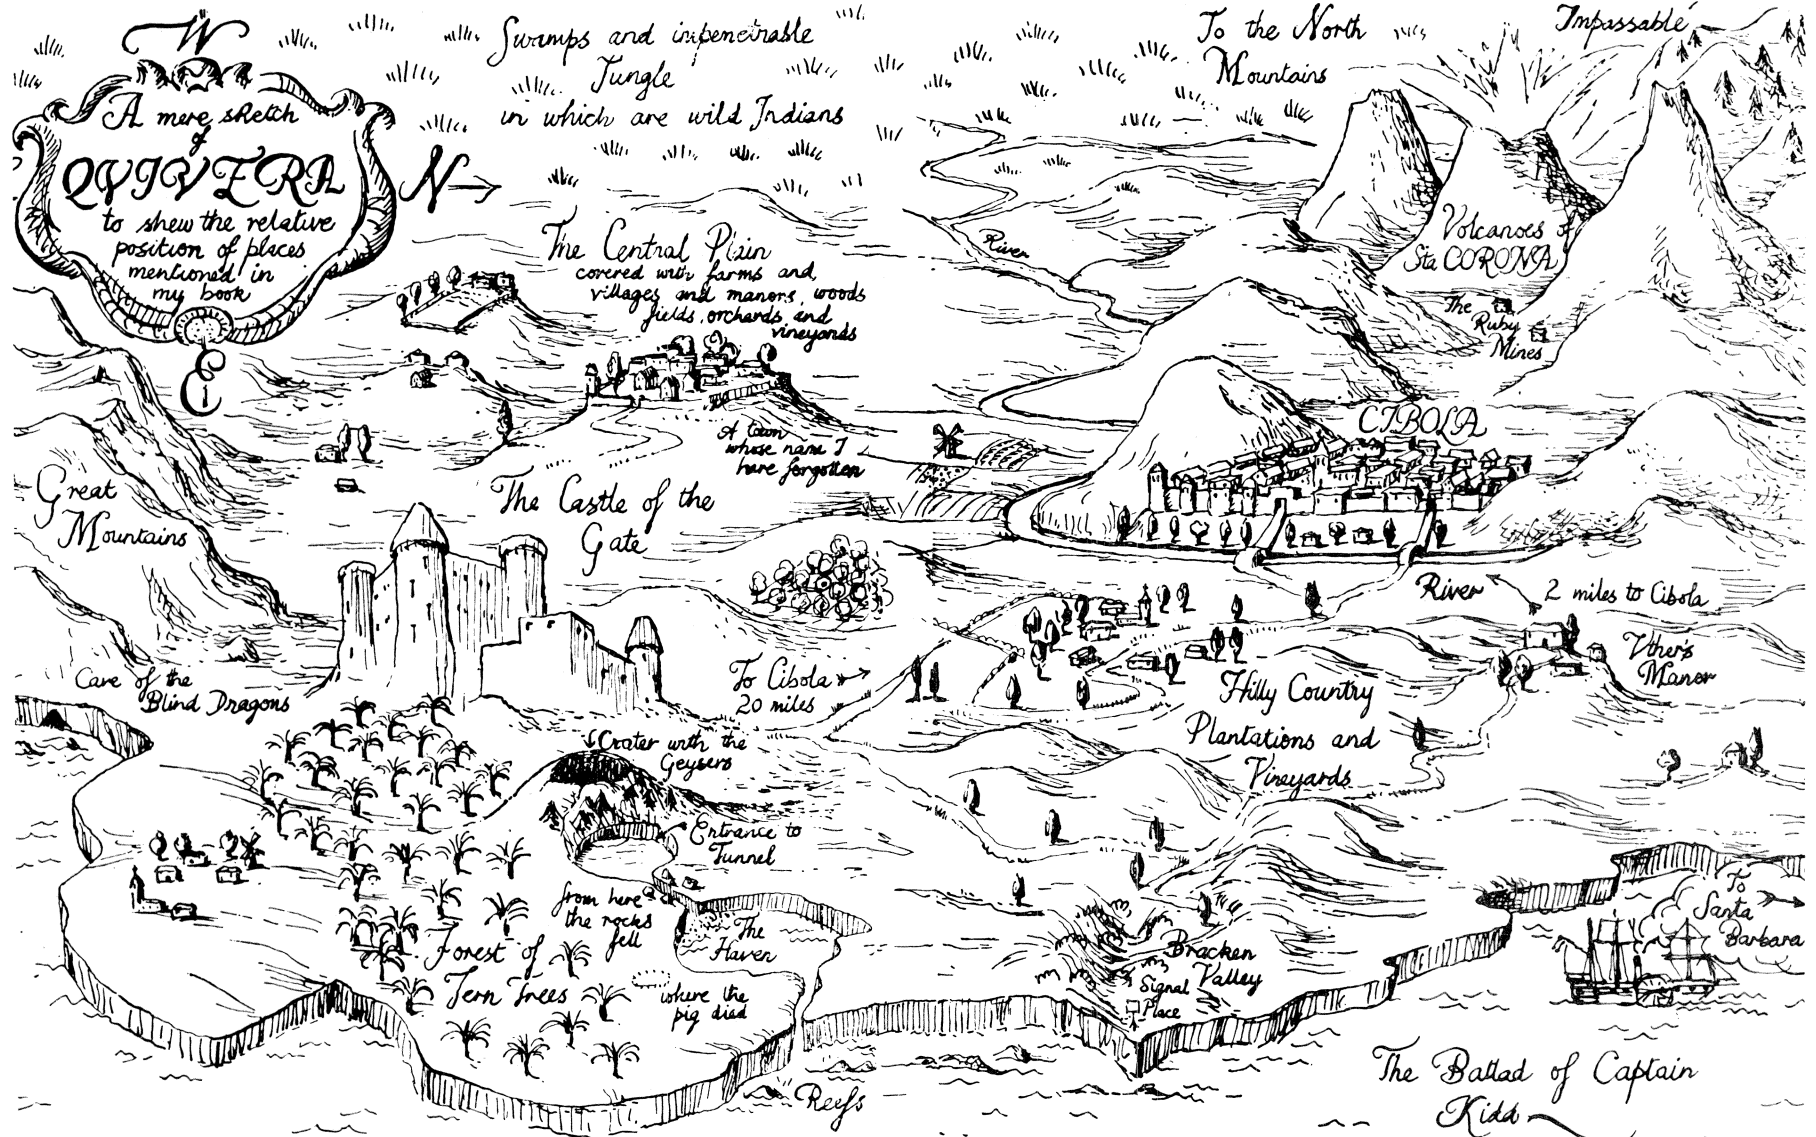 W
A mere sketch
of
QVIVERA
to shew the relative
position of places
mentioned in
my book
N
E
Swamps and impenetrable
Jungle
in which are wild Indians
To the North
Mountains
Impassable
The Central Plain
covered with farms and
villages and manors, woods
fields, orchards, and
vineyards
River
Volcanoes of
Sta CORONA
The
Ruby
Mines
A town
whose name I
have forgotten
CIBOLA
Great
Mountains
The Castle of the
Gate
River
2 miles to Cibola
Vther's
Manor
Cave of the
Blind Dragons
To Cibola
20 miles
Hilly Country
Plantations and
Vineyards
Crater with the
Geysers
Entrance to
Tunnel
from here
the rocks
fell
The
Haven
Forest of
Fern Trees
where the
pig died
Bracken
Valley
Signal
Place
To
Santa
Barbara
Reefs
The Ballad of Captain
Kidd